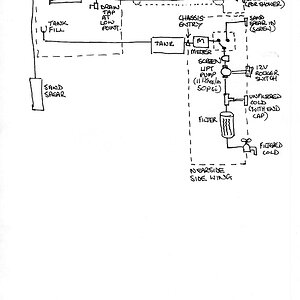 (FOR SHOWER)
DRAIN
TAP
AT
LOW
POINT
TANK
FILL
CHASSIS
ENTRY
SAND
SPEAR IN
(SCREW)
TANK
M
METER
SCREEN
LIFT
PUMP
12V
ROCKER
SWITCH
SAND
SPEAR
UNFILTERED
COLD
(WITH END
CAP)
FILTER
FILTERED
COLD
NEARSIDE
SIDE WING